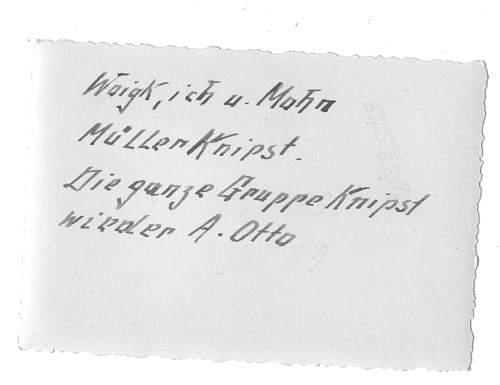 Woigk, ich u. Mohn
Müller Knipst.
Die ganze Gruppe Knipst
wieder A. Otto